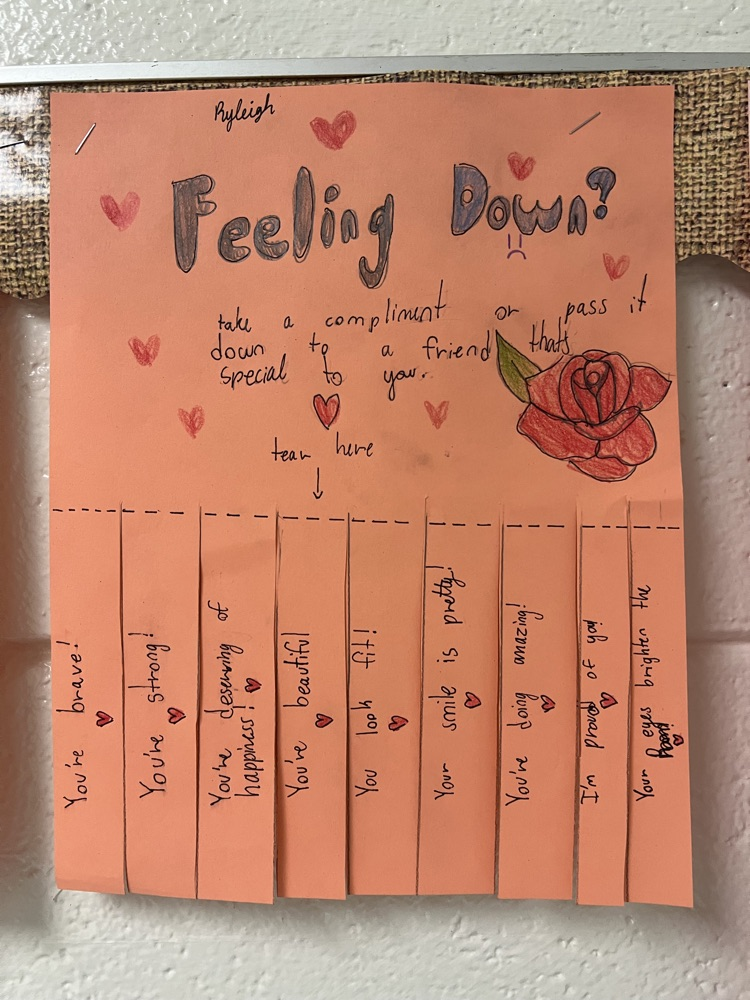 Ryleigh
Feeling Down?
take a compliment or pass it
down to a friend thats
special to you.
tear here
You're brave!
You're strong!
You're deserving of
happiness!
You're beautiful
You look fit!
Your smile is pretty!
You're doing amazing!
I'm proud of you!
Your eyes brighten the